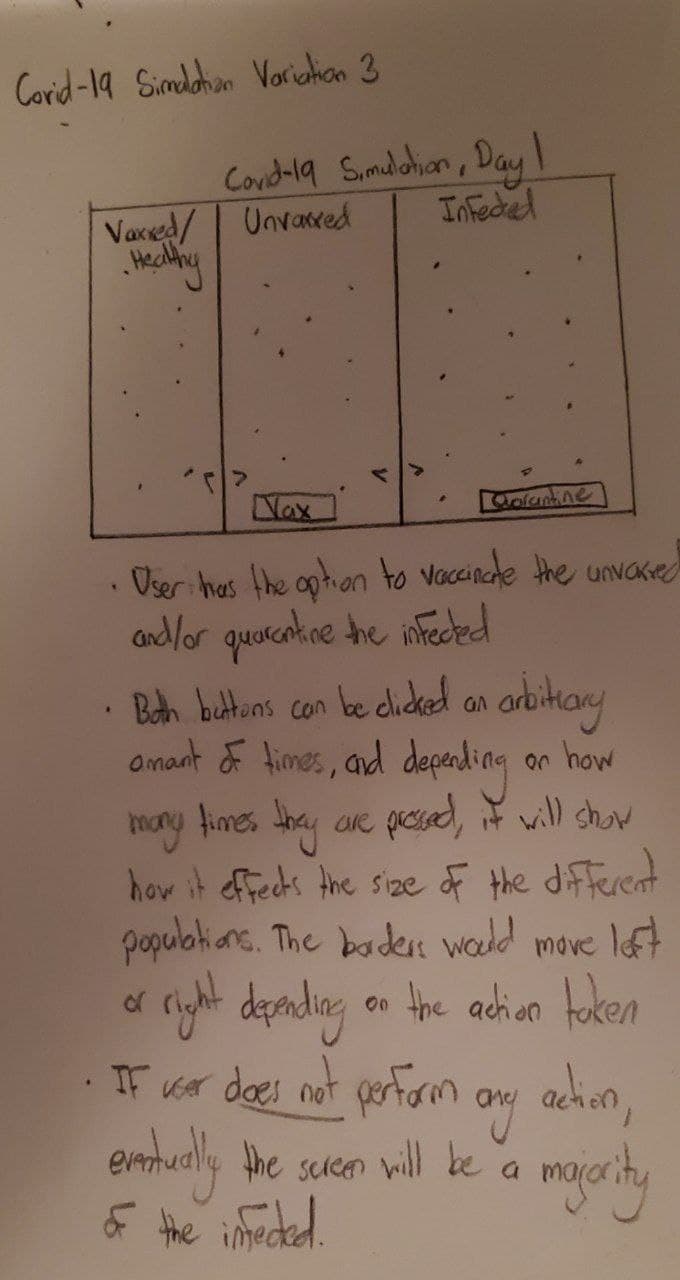 Covid-19 Simulation Variation 3
Covid-19 Simulation, Day 1
Vaxxed/
Healthy
Unvaxxed
Infected
< >
< >
Vax
Quarantine
· User has the option to vaccinate the unvaxxed
and/or quarantine the infected
· Both buttons can be clicked an arbitrary
amant of times, and depending on how
many times they are pressed, it will show
how it effects the size of the different
populations. The borders would move left
or right depending on the action taken
· If user does not perform any action,
eventually the screen will be a majority
of the infected.